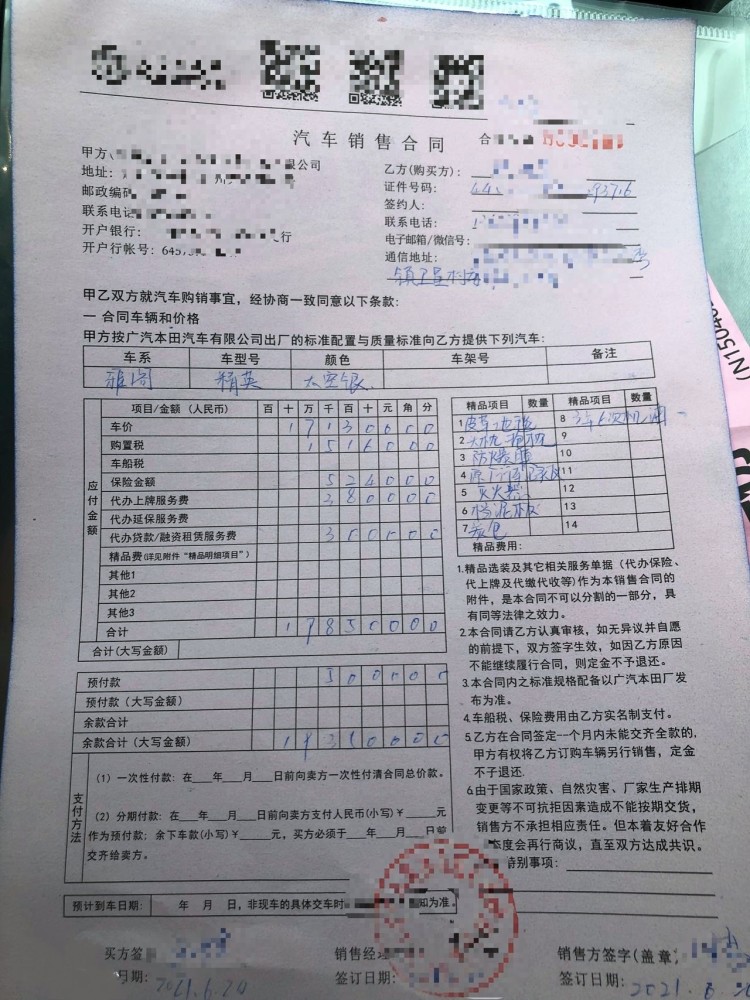 汽车销售合同
甲方
限公司
地址:
邮政编码
联系电话
开户银行:
行
开户行帐号: 645
乙方(购买方):
证件号码: 44 93716
签约人:
联系电话: 1
电子邮箱/微信号:
通信地址:
甲乙双方就汽车购销事宜,经协商一致同意以下条款:
一 合同车辆和价格
甲方按广汽本田汽车有限公司出厂的标准配置与质量标准向乙方提供下列汽车:
车系 车型号 颜色 车架号 备注
雅阁 精英 太空银
应付金额
项目/金额 (人民币) 百 十 万 千 百 十 元 角 分
车价 1 7 1 3 0 0 0 0
购置税 1 5 1 6 0 0 0
车船税
保险金额 5 2 4 0 0 0
代办上牌服务费 2 8 0 0 0 0
代办延保服务费
代办贷款/融资租赁服务费 3 0 0 0 0 0
精品费(详见附件“精品明细项目”)
其他1
其他2
其他3
合计 1 9 8 5 0 0 0 0
合计(大写金额)
预付款 5 0 0 0 0 0
预付款(大写金额)
余款合计
余款合计(大写金额) 1 9 3 5 0 0 0 0
支付方法
(1)一次性付款: 在 年 月 日前向卖方一次性付清合同总价款。
(2)分期付款: 在 年 月 日前向卖方支付人民币(小写)¥ 元
作为预付款; 余下车款(小写)¥ 元, 买方必须于 年 月 日前
交齐给卖方。
预计到车日期: 年 月 日, 非现车的具体交车时
知为准。
精品项目 数量 精品项目 数量
1 皮革地毯 8
2 9
3 防爆膜 10
4 11
5 灭火器 12
6 挡泥板 13
7 14
精品费用:
1.精品选装及其它相关服务单据(代办保险、
代上牌及代缴代收等)作为本销售合同的
附件,是本合同不可以分割的一部分,具
有同等法律之效力。
2.本合同请乙方认真审核,如无异议并自愿
的前提下,双方签字生效,如因乙方原因
不能继续履行合同,则定金不予退还。
3.本合同内之标准规格配备以广汽本田厂发
布为准。
4.车船税、保险费用由乙方实名制支付。
5.乙方在合同签定--个月内未能交齐全款的,
甲方有权将乙方订购车辆另行销售,定金
不于退还.
6.由于国家政策、自然灾害、厂家生产排期
变更等不可抗拒因素造成不能按期交货,
销售方不承担相应责任。但本着友好合作
态度会再行商议,直至双方达成共识。
特别事项:
买方签
日期: 2021.6.20
销售经
签订日期:
销售方签字(盖章
签订日期: 2021.6.
(N1504